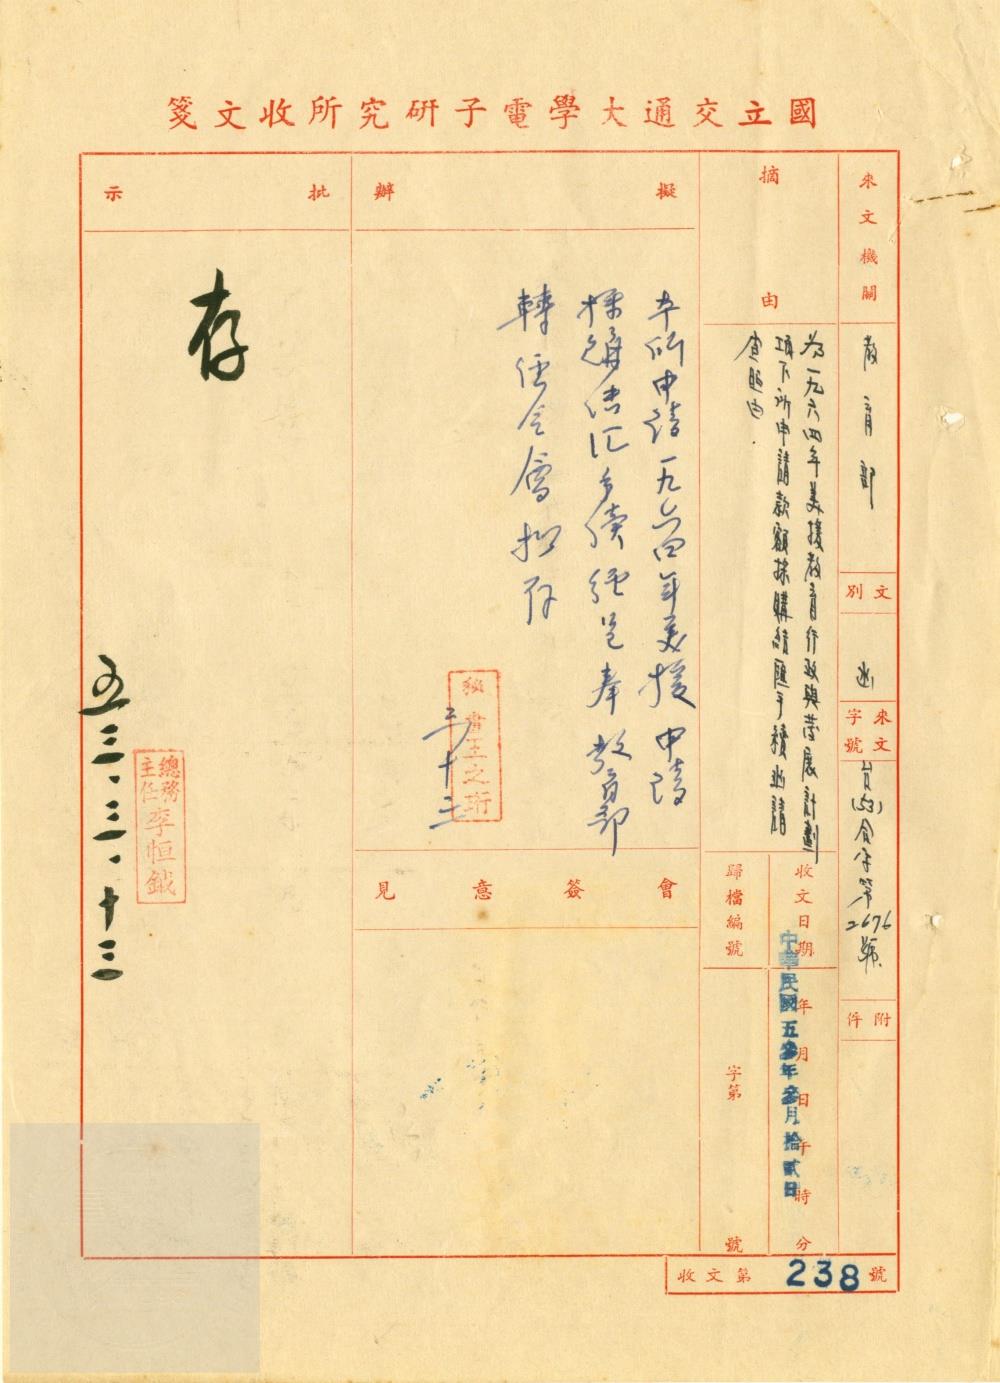 國立交通大學電子研究所收文箋
來文機關
教育部
文別
函
來文字號
台(53)
字第2676號
附件
摘由
為一九六四年美援教育行政與發展計劃
項下所申請款額採購結匯手續函請
查照由.
收文日期
年月日午時分
中華民國五參年參月拾貳日
歸檔編號
字第號
擬辦
本所申請一九六四年美援申請
採購結匯手續經已奉教育部
轉
擬存
秘書王之珩
三、十三
會簽意見
批示
存
五三.三.十三
總務主任李恒鉞
收文第238號